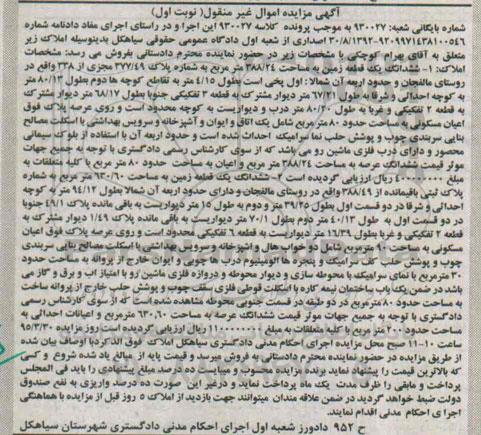 آگهی مزایده اموال غیر منقول( نوبت اول)
شماره بایگانی شعبه: ۹۳۰۰۲۷ به موجب پرونده کلاسه ۹۳۰۰۲۷ این اجرا و در راستای اجرای مفاد دادنامه شماره
۹۲۰۹۹۷۱۴۳۸۱۰۰۵۴۶-۳۰/۸/۱۳۹۲ اصداری از شعبه اول دادگاه عمومی حقوقی سیاهکل بدینوسیله املاک زیر
متعلق به آقای بهرام کوچکی با مشخصات زیر در حضور نماینده محترم دادستانی بفروش می رسد: مشخصات
املاک: ۱- ششدانگ یک قطعه زمین به مساحت ۳۸۸/۲۴ متر مربع به شماره پلاک ۳۷۷/۴۹ مجزی از ۳۳۸ واقع در
روستای مالفجان و حدود اربعه آن شمالا: اول پخی است بطول ۴/۱۵ متر به تقاطع کوچه ها دوم بطول ۸۰/۱۳ متر
به کوچه احداثی و شرقا به طول ۶۷/۲۱ متر دیوار مشترک به قطعه ۳ تفکیکی جنوبا بطول ۶۸/۱۷ متر دیوار مشترک
به قطعه ۲ تفکیکی و غربا بطول ۸۰/۲۰ متر درب و دیواریست به کوچه محدود است و روی عرصه پلاک فوق
اعیان مسکونی به مساحت حدود ۸۰ متر مربع شامل یک اتاق و ایوان و آشپزخانه و سرویس بهداشتی با اسکلت مصالح
بنایی سربندی چوب و پوشش حلب نما سرامیک احداث شده است و حدود اربعه آن با استفاده از بلوک سیمانی
محصور و دارای درب فلزی ماشین رو می باشد که از سوی کارشناس رسمی دادگستری با توجه به جمیع جهات
موثر قیمت ششدانگ عرصه به مساحت ۳۸۸/۲۴ متر مربع و اعیان به مساحت حدود ۸۰ متر مربع با کلیه متعلقات به
ریال ارزیابی گردیده است ۲- ششدانگ یک قطعه زمین به مساحت ۶۳۰/۶۰ متر مربع به شماره
پلاک ثبتی باقیمانده از ۳۸۸/۴۹ واقع در روستای مالفجان و دارای حدود اربعه آن شمالا بطول ۹۴/۱۲ متر به کوچه
احداثی و شرقا در دو قسمت اول بطول ۳۹/۲۵ متر و دوم به طول ۱۵ متر دیواریست به باقی مانده پلاک ۴۹/۱ جنوبا
در دو قسمت اول به طول ۴۰/۱۳ متر دوم بطول ۷۰/۱ متر دیواریست به باقی مانده پلاک ۱/۴۹ دیوار مشترک به
قطعه ۲ تفکیکی و غربا بطول ۱۶/۳۹ متر دیواریست به قطعه ۶ تفکیکی محدود است و روی عرصه پلاک فوق اعیان
مسکونی به مساحت ۹۰ متر مربع شامل دو خواب هال و آشپزخانه و سرویس بهداشتی با اسکلت مصالح بنایی سربندی
چوب و پوشش حلب کف سرامیک و پنجره ها آلومینیوم در دو قسمت شمالی و ایوان خارج از پروانه به مساحت حدود
۳۰ مترمربع با نمای سرامیک با محوطه سازی و دیوار محوطه و دروازه فلزی ماشین رو با امتیاز اب و برق و گاز می
باشد در ضمن یک باب ساختمان نیمه کاره با اسکلت قوطی فلزی سقف چوب و پوشش حلب خارج از پروانه ساخت
به مساحت حدود ۸۰ مترمربع در دو طبقه در قسمت جنوبی محوطه مشاهده شده است که از سوی کارشناس رسمی
دادگستری با توجه به جمیع جهات موثر قیمت ششدانگ عرصه به مساحت ۶۳۰/۶۰ متر مربع و اعیانات احداثی به
مساحت حدود ۲۰۰ متر مربع با کلیه متعلقات به مبلغ ریال ارزیابی گردیده است روز مزایده ۹۵/۳/۳۰
ساعت ۱۰-۱۱ صبح محل مزایده اجرای احکام مدنی دادگستری سیاهکل املاک فوق الذکر با اوصاف بیان شده
از طریق مزایده در حضور نماینده محترم دادستانی به فروش میرسد و قیمت پایه از مبالغ یاد شده شروع و کسی
که بالاترین قیمت را پیشنهاد نماید برنده مزایده محسوب و میبایست ده درصد مبلغ پیشنهادی را باید فی المجلس
پرداخت و مابقی را ظرف مدت یک ماه پرداخت نماید و در غیر این صورت ده درصد واریزی به نفع صندوق
دولت ضبط خواهد گردید در ضمن علاقه مندان میتوانند جهت بازدید از املاک ۵ روز قبل از مزایده با هماهنگی
اجرای احکام مدنی اقدام نمایند.
ح ۹۵۲ دادورز شعبه اول اجرای احکام مدنی دادگستری شهرستان سیاهکل